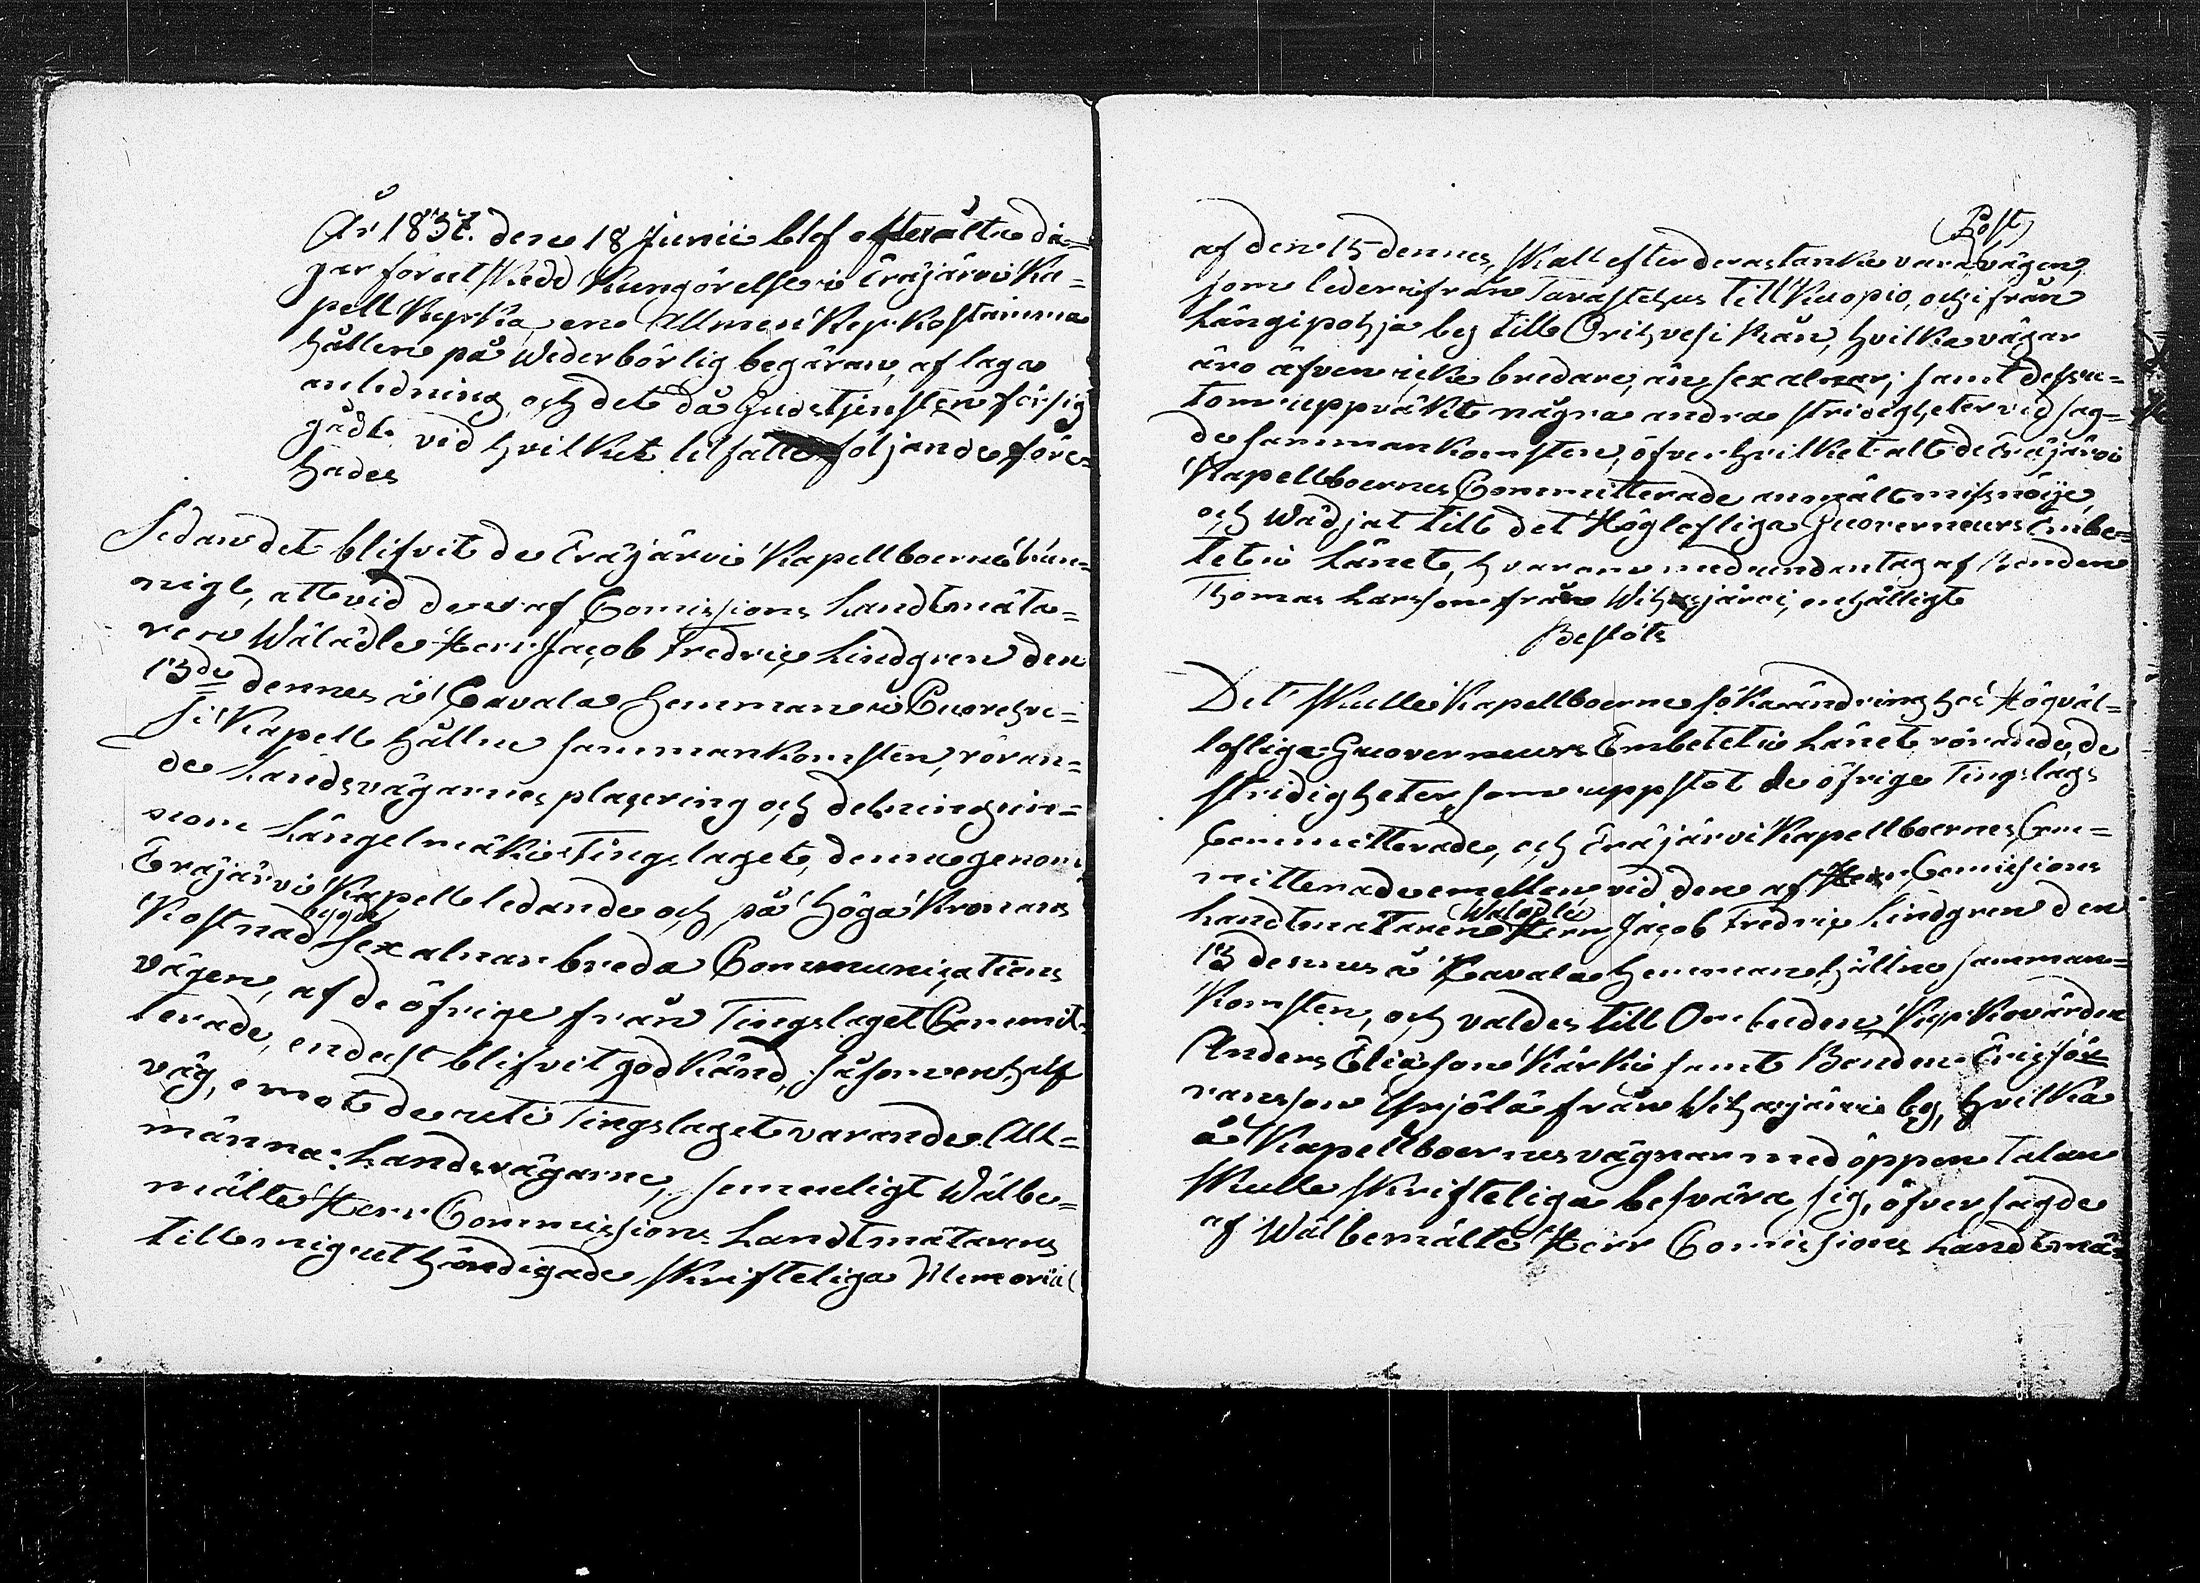 År 1837. den 18 Junii blef efter åtta da=
gar förut skedd Kungörelse i Eräjärvi Ka=
pell Kyrka en Allmen Kyrkostämma
hållen på wederbörlig begäran, af laga
anledning och det då Gudstjensten för sig
gådt vid hvilket tilfälle följande före=
hades
Sedan det blifvit de Eräjärvi Kapellboerne kun=
nigt, att vid den af Comissions Landtmäta=
ren Wälädle Herr Jacob Fredric Lindgren den
13de dennes å Cavala hemman i Cuorehve=
si Kapell hållne sammankomsten, röran=
de Landsvägarnes placering och delning in=
nom Längelmäki Tingslaget, denne genom
Eräjärvi Kapell ledande och på höga Kronans
Kostnad bygde sex alnar breda Communications
vägen, af de öfrige från Tingslaget Commit=
terade, endast blifvit godkänd, såsom en half
väg, emot de uti Tingslaget varande All=
männa: Landsvägarne, som enligt Wälbe=
mälte Herr Commissions Landtmätarens
till mig uthändigade skrifteliga Memorial
af den 15 dennes, skall efter deras tanke vara Post vägen,
som leder ifrån Tavastehus till Kuopio, och ifrån
Längipohja by till Orihvesi Rån, hvilka vägar
äro äfven icke bredare, än sex alnar; samt dessu=
tom uppväkt några andra stridigheter vid sag=
de sammankomsten, öfver hvilket alt de Eräjärvi
Kapellboernes Committerade anmält missnöije,
och Wädjat till det Höglofliga Guverneurs Embe=
tet i Länet, hvaröm med undantag af Bonden
Thomas Larsson från Wihasjärvi, enhälligt
Beslöts
Det skulle Kapellboerne söka ändring hos Högväl=
lofliga Guoverneurs Embetet i Länet rörande, de
stridigheter, som uppstot de öfrige Tingslags
Committerade, och Eräjärvi Kapellboernes Com=
mitterade emellen vid den af Herr Comissions
Landtmätaren Wälädle Herrn Jacob Fredric Lindgren den
13 dennes å Cavala hemman, hållne samman=
komsten, och valdes till Ombuden, Kyrkovärden
Anders Eliäson Kärki samt Bonden Eric Jö=
ransson Yrjölä från Wihasjärvi by, hvilka
å Kapellboernes vägnar med öppen talan
skulle skrifteliga besvära sig, öfver sagde
af Wälbemälte Herr Comissions Landtmä=